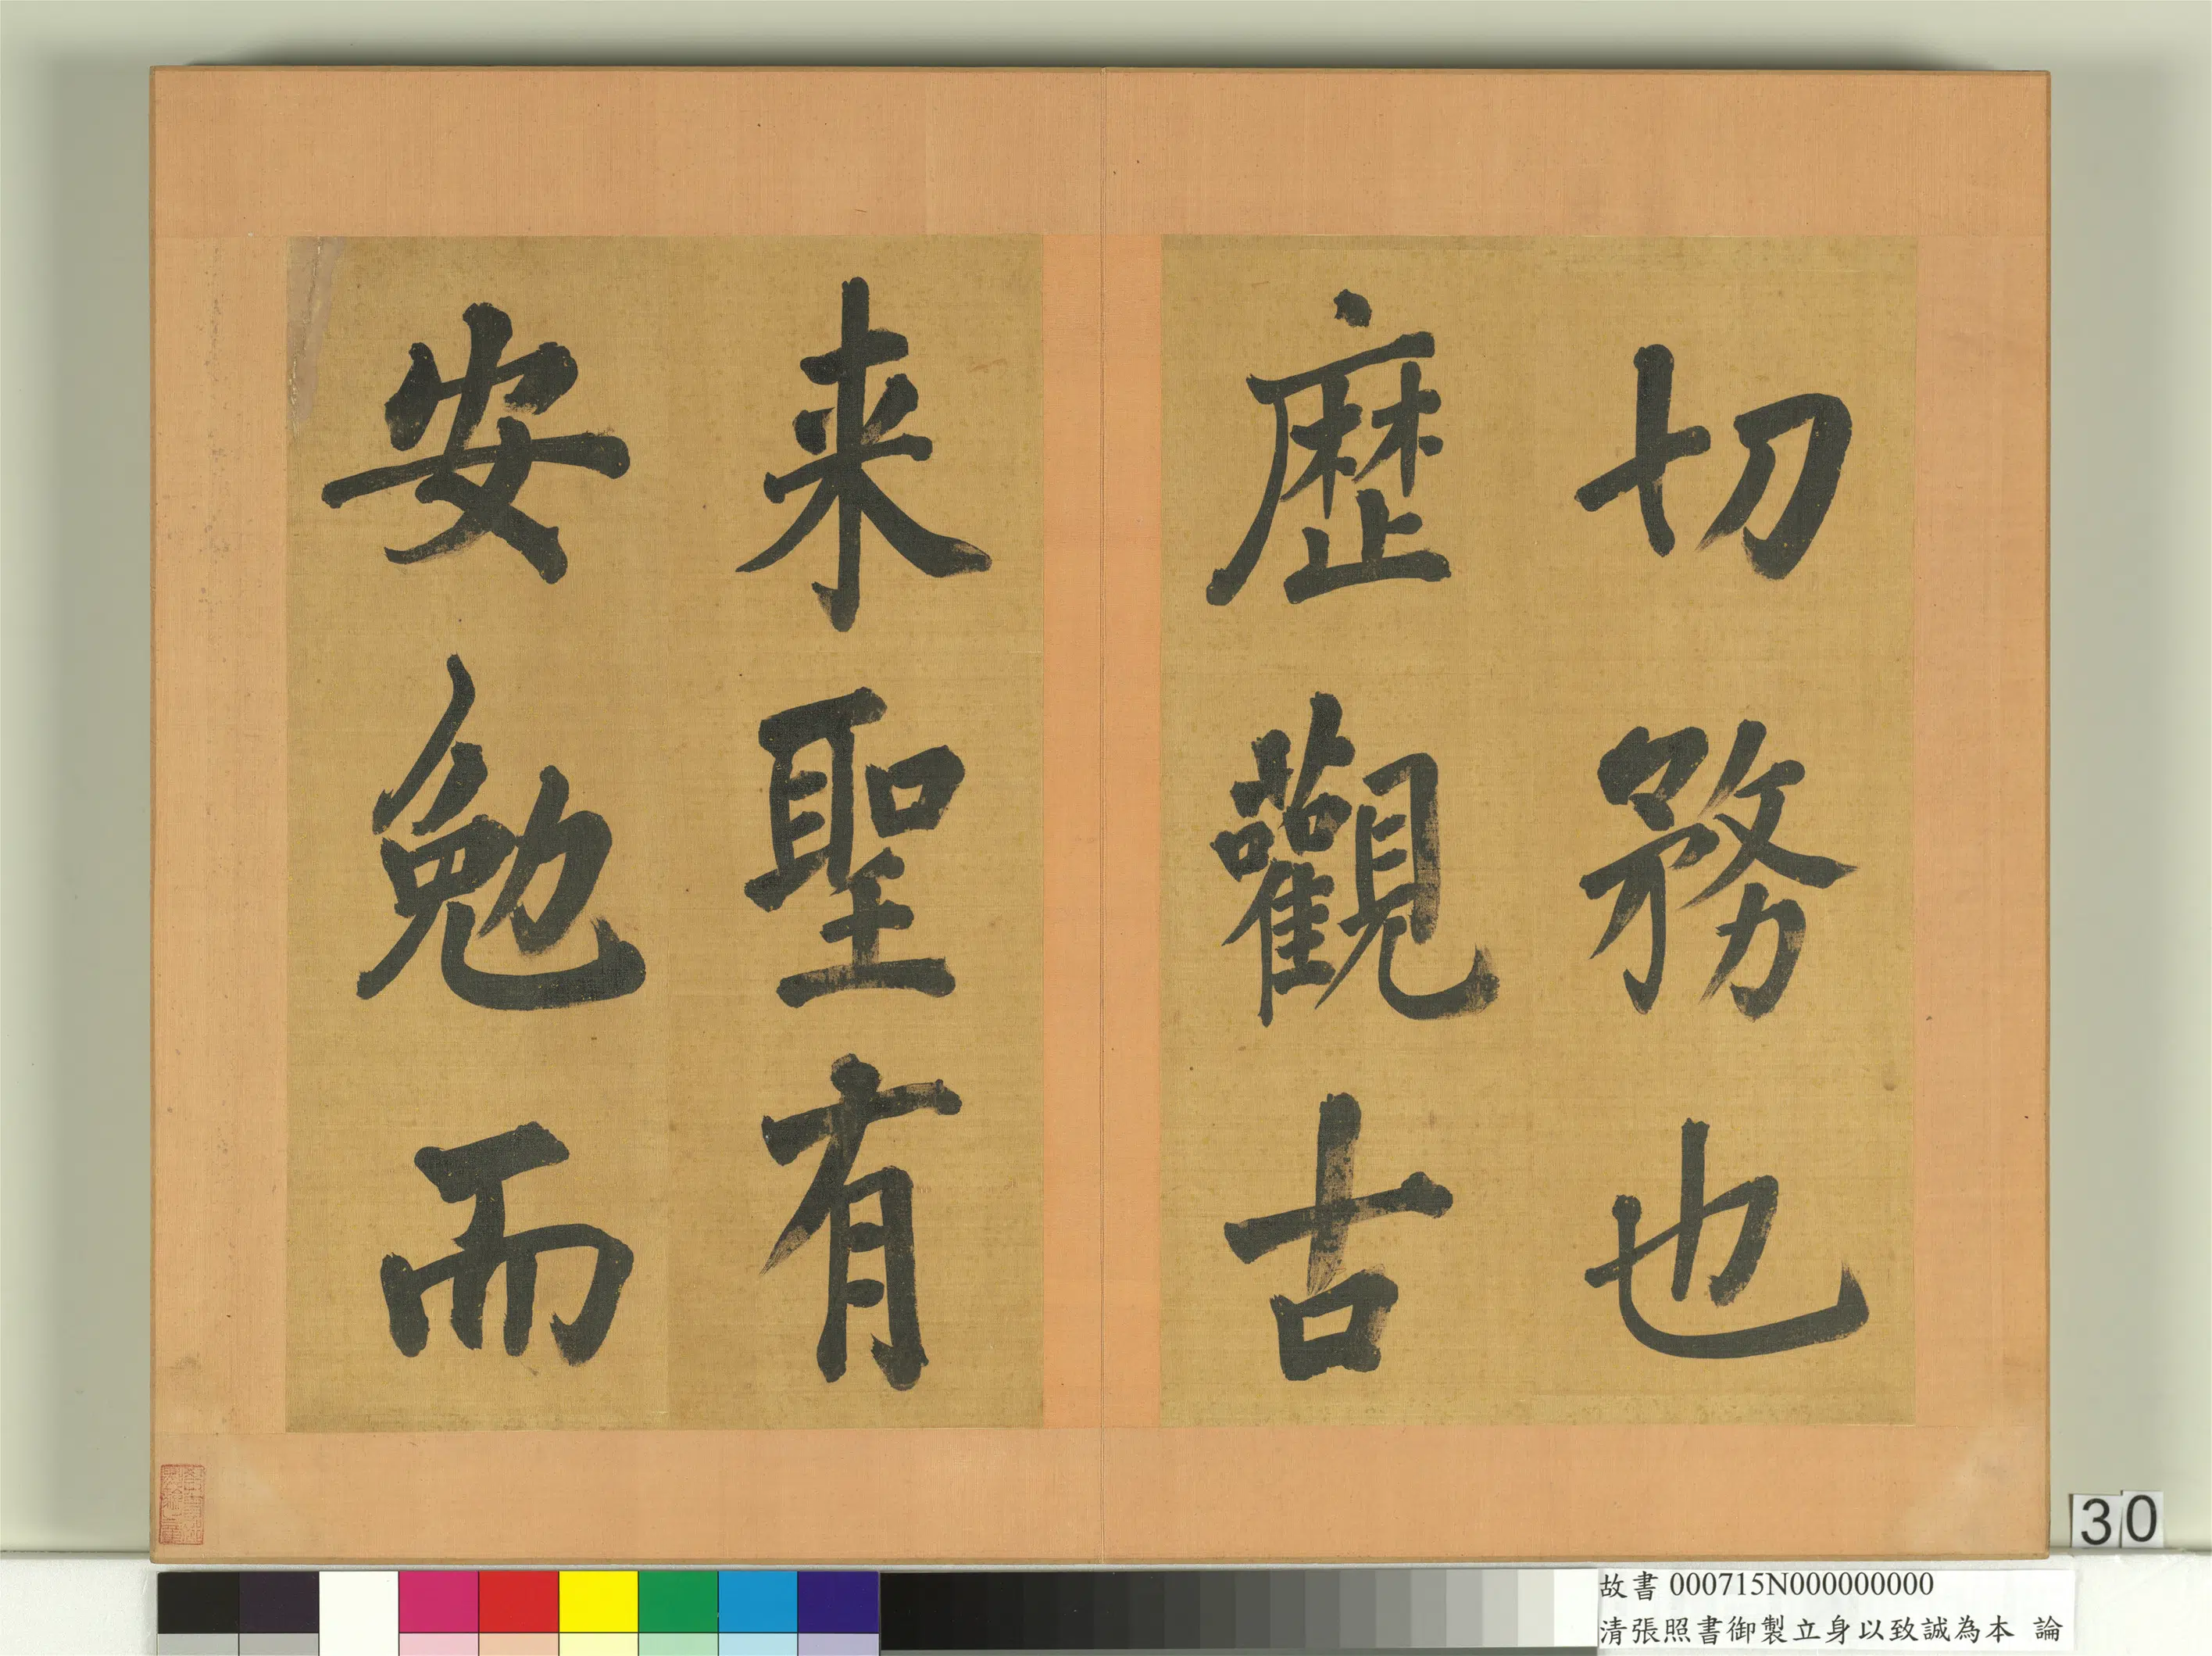 切務也
歷觀古
来聖有
安勉而
30
故書 000715N000000000
清張照書御製立身以致誠為本 論